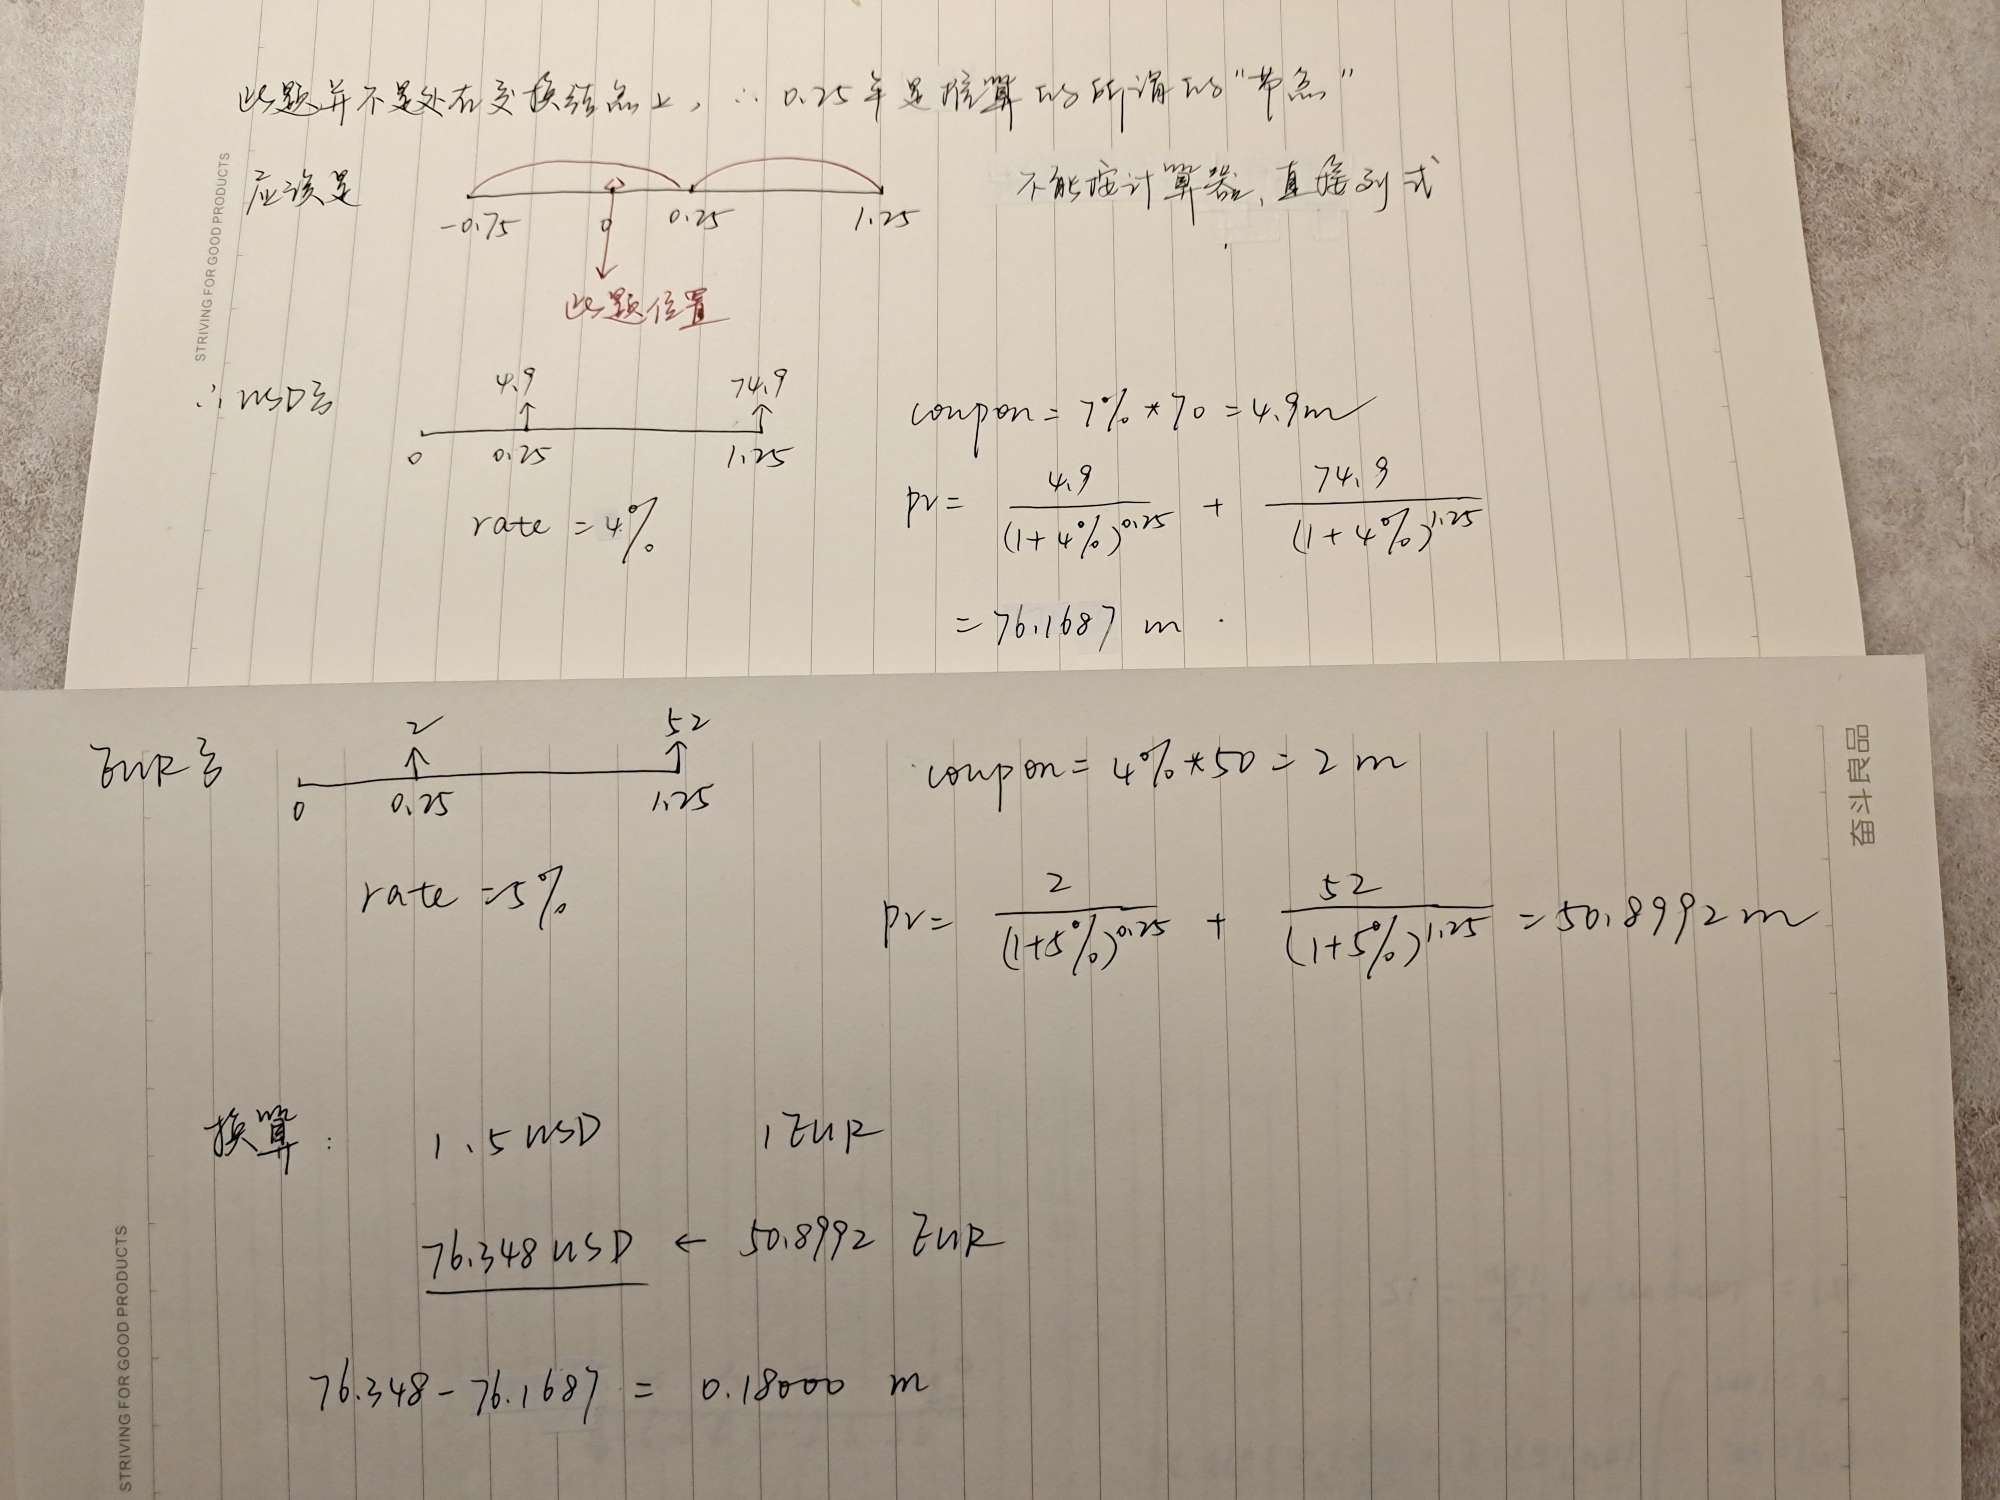 此题并不是处在交换结点上，∴ 0.25年是核算的所谓的"节点"
应该是
-0.75 0 0.25 1.25
不能按计算器，直接列式
此题位置
∴ USD:
4.9 74.9
0 0.25 1.25
coupon = 7% * 70 = 4.9m
rate = 4%
PV = 4.9/(1+4%)^0.25 + 74.9/(1+4%)^1.25
= 76.1687 m
EUR:
2 52
0 0.25 1.25
coupon = 4% * 50 = 2 m
rate = 5%
PV = 2/(1+5%)^0.25 + 52/(1+5%)^1.25 = 50.8992 m
换算:
1.5 USD 1 EUR
76.348 USD ← 50.8992 EUR
76.348 - 76.1687 = 0.18000 m
STRIVING FOR GOOD PRODUCTS
STRIVING FOR GOOD PRODUCTS
奋斗良品